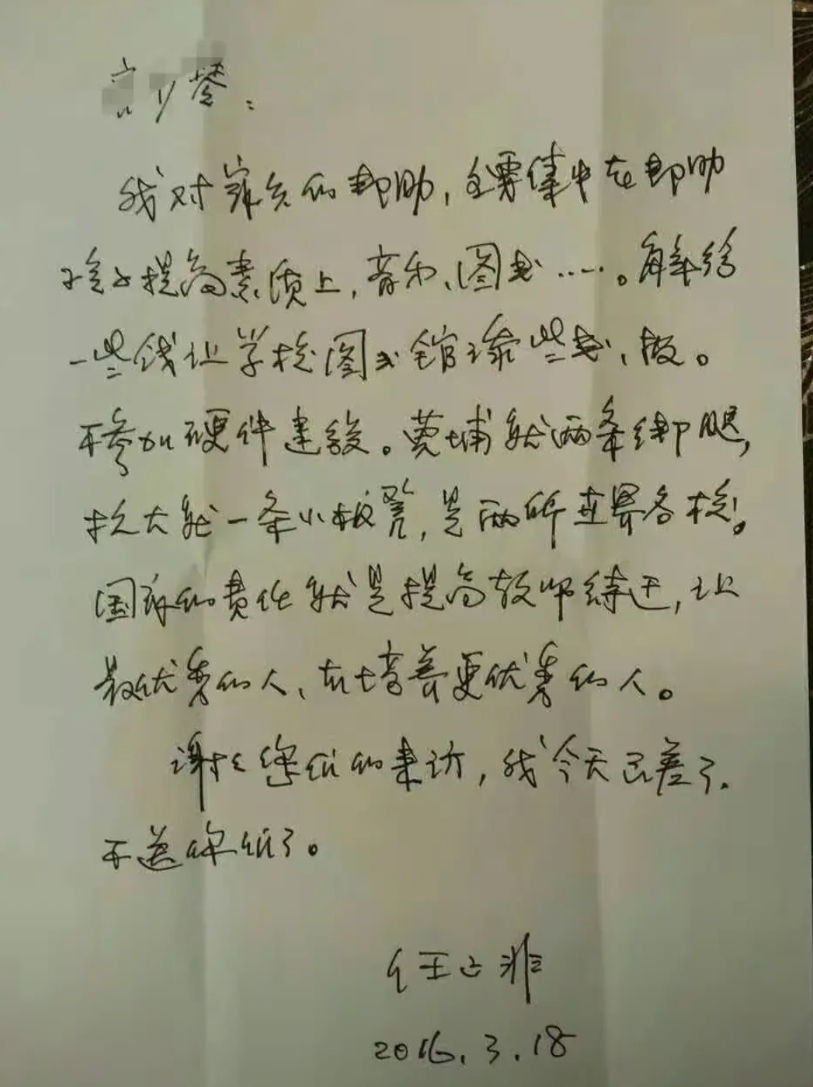 我对家乡的帮助，主要集中在帮助
孩子提高素质上，音乐、图书……。每年给
一些钱让学校图书馆添些书、报。
不参加硬件建设。黄埔就两条绑腿，
抗大就一条小板凳，是两所世界名校。
国家的责任就是提高教师待遇，让
最优秀的人、去培养更优秀的人。
谢谢您们的来访，我今天出差了，
不送你们了。
任正非
2016.3.18